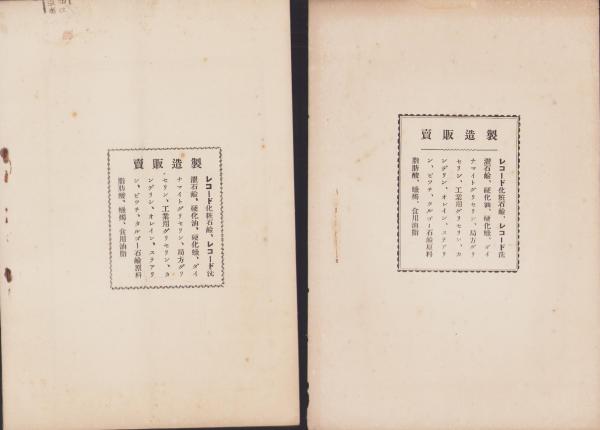 賣販造製
レコード化粧石鹼、レコード洗
濯石鹼、硬化油、硬化蠟、ダイ
ナマイトグリセリン、局方グリ
セリン、工業用グリセリン、カ
ンデリン、オレイン、ステアリ
ン、ピッチ、タルゴー石鹼原料
脂肪酸、蠟燭、食用油脂
賣販造製
レコード化粧石鹼、レコード洗
濯石鹼、硬化油、硬化蠟、ダイ
ナマイトグリセリン、局方グリ
セリン、工業用グリセリン、カ
ンデリン、オレイン、ステアリ
ン、ピッチ、タルゴー石鹼原料
脂肪酸、蠟燭、食用油脂